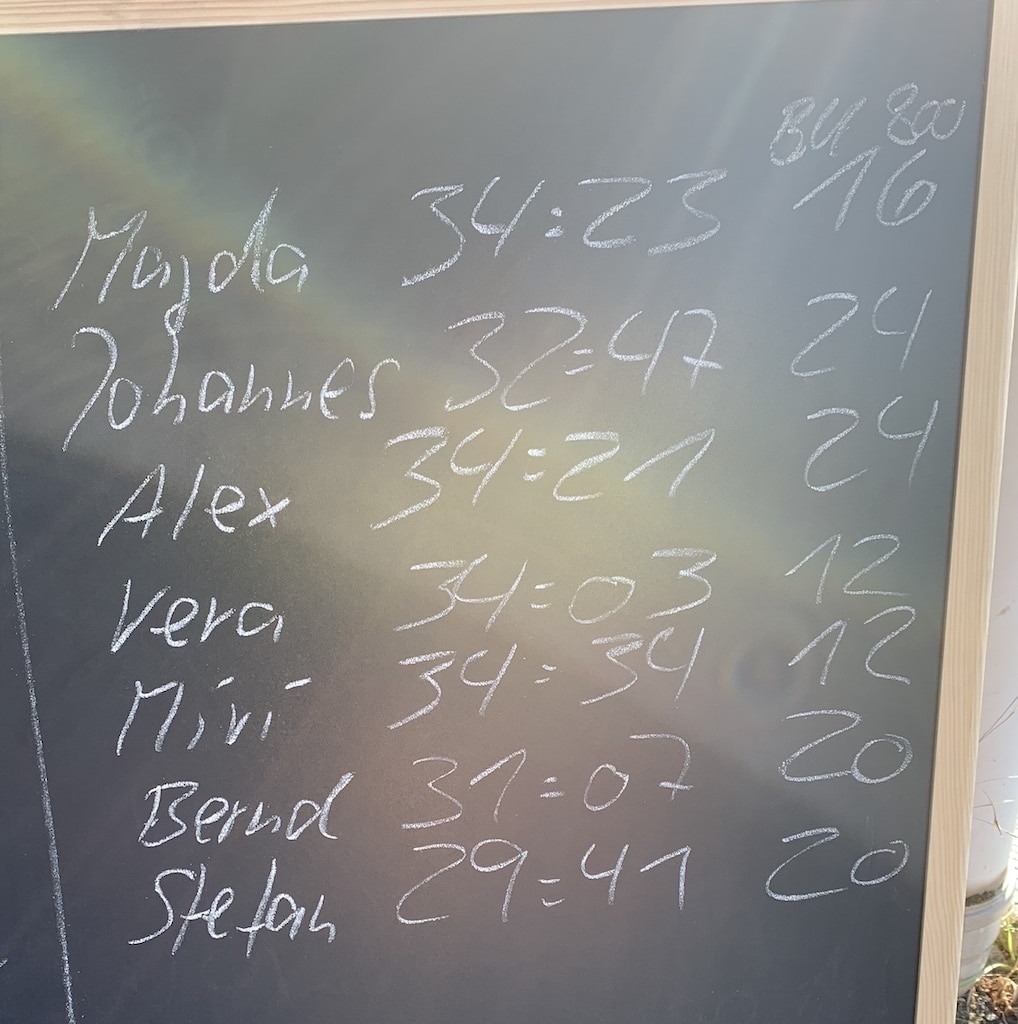 BU 800
Magda 34:23 16
Johannes 32:47 24
Alex 34:21 24
Vera 34:03 12
Miri 34:34 12
Bernd 31:07 20
Stefan 29:41 20